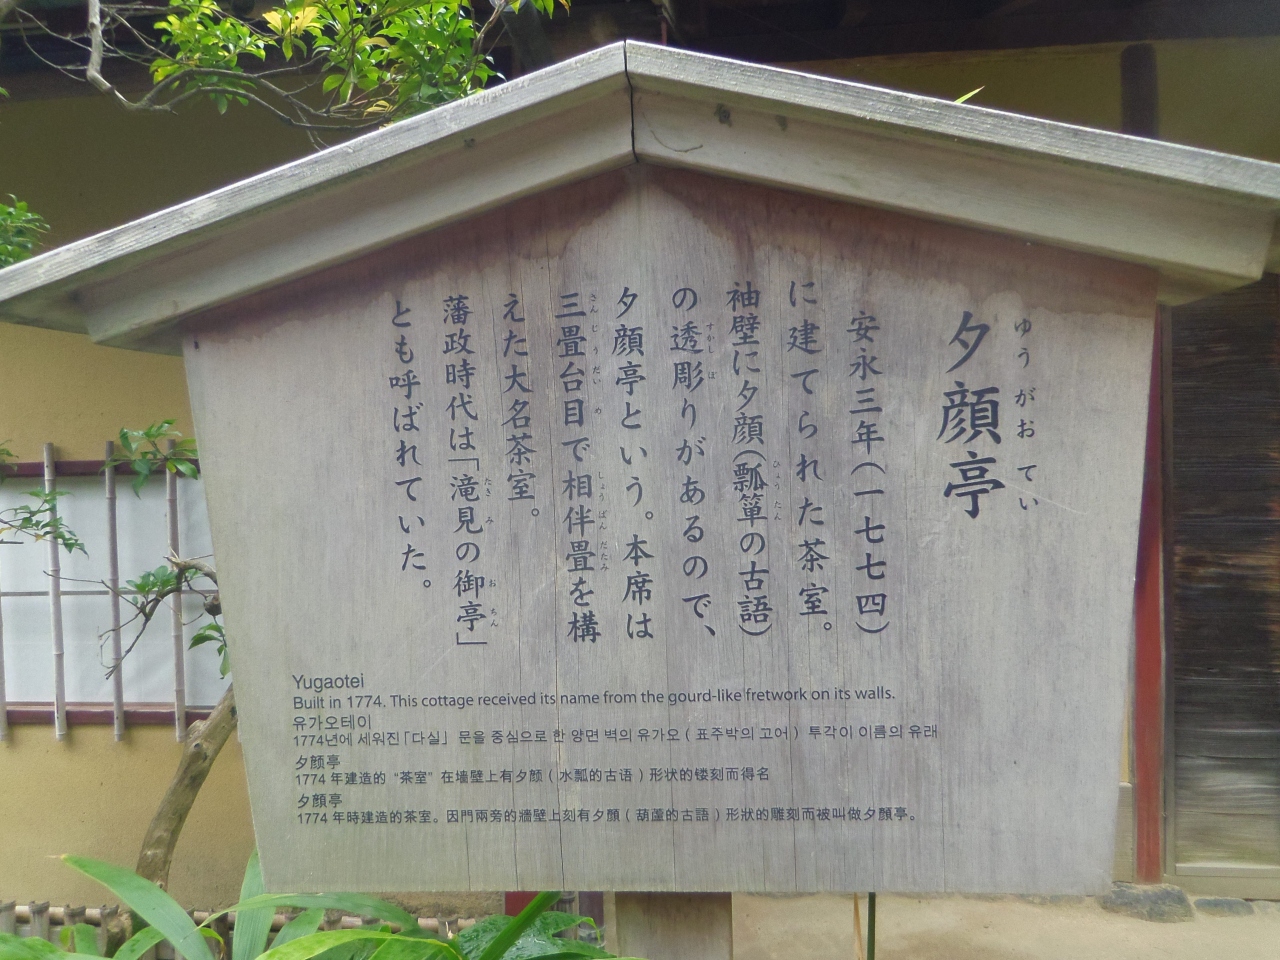 夕顔亭
ゆうがおてい
安永三年(一七七四)
に建てられた茶室。
袖壁に夕顔(瓢箪の古語)
ひょうたん
の透彫りがあるので、
すかしぼ
夕顔亭という。本席は
三畳台目で相伴畳を構
さんじょうだいめ しょうばんだたみ
えた大名茶室。
藩政時代は「滝見の御亭」
たきみ おちん
とも呼ばれていた。
Yugaotei
Built in 1774. This cottage received its name from the gourd-like fretwork on its walls.
유가오테이
1774년에 세워진「다실」 문을 중심으로 한 양면 벽의 유가오 (표주박의 고어) 투각이 이름의 유래
夕颜亭
1774年建造的“茶室”在墙壁上有夕颜(水瓢的古语)形状的镂刻而得名
夕顏亭
1774年時建造的茶室。因門兩旁的牆壁上刻有夕顏(葫蘆的古語)形狀的雕刻而被叫做夕顏亭。